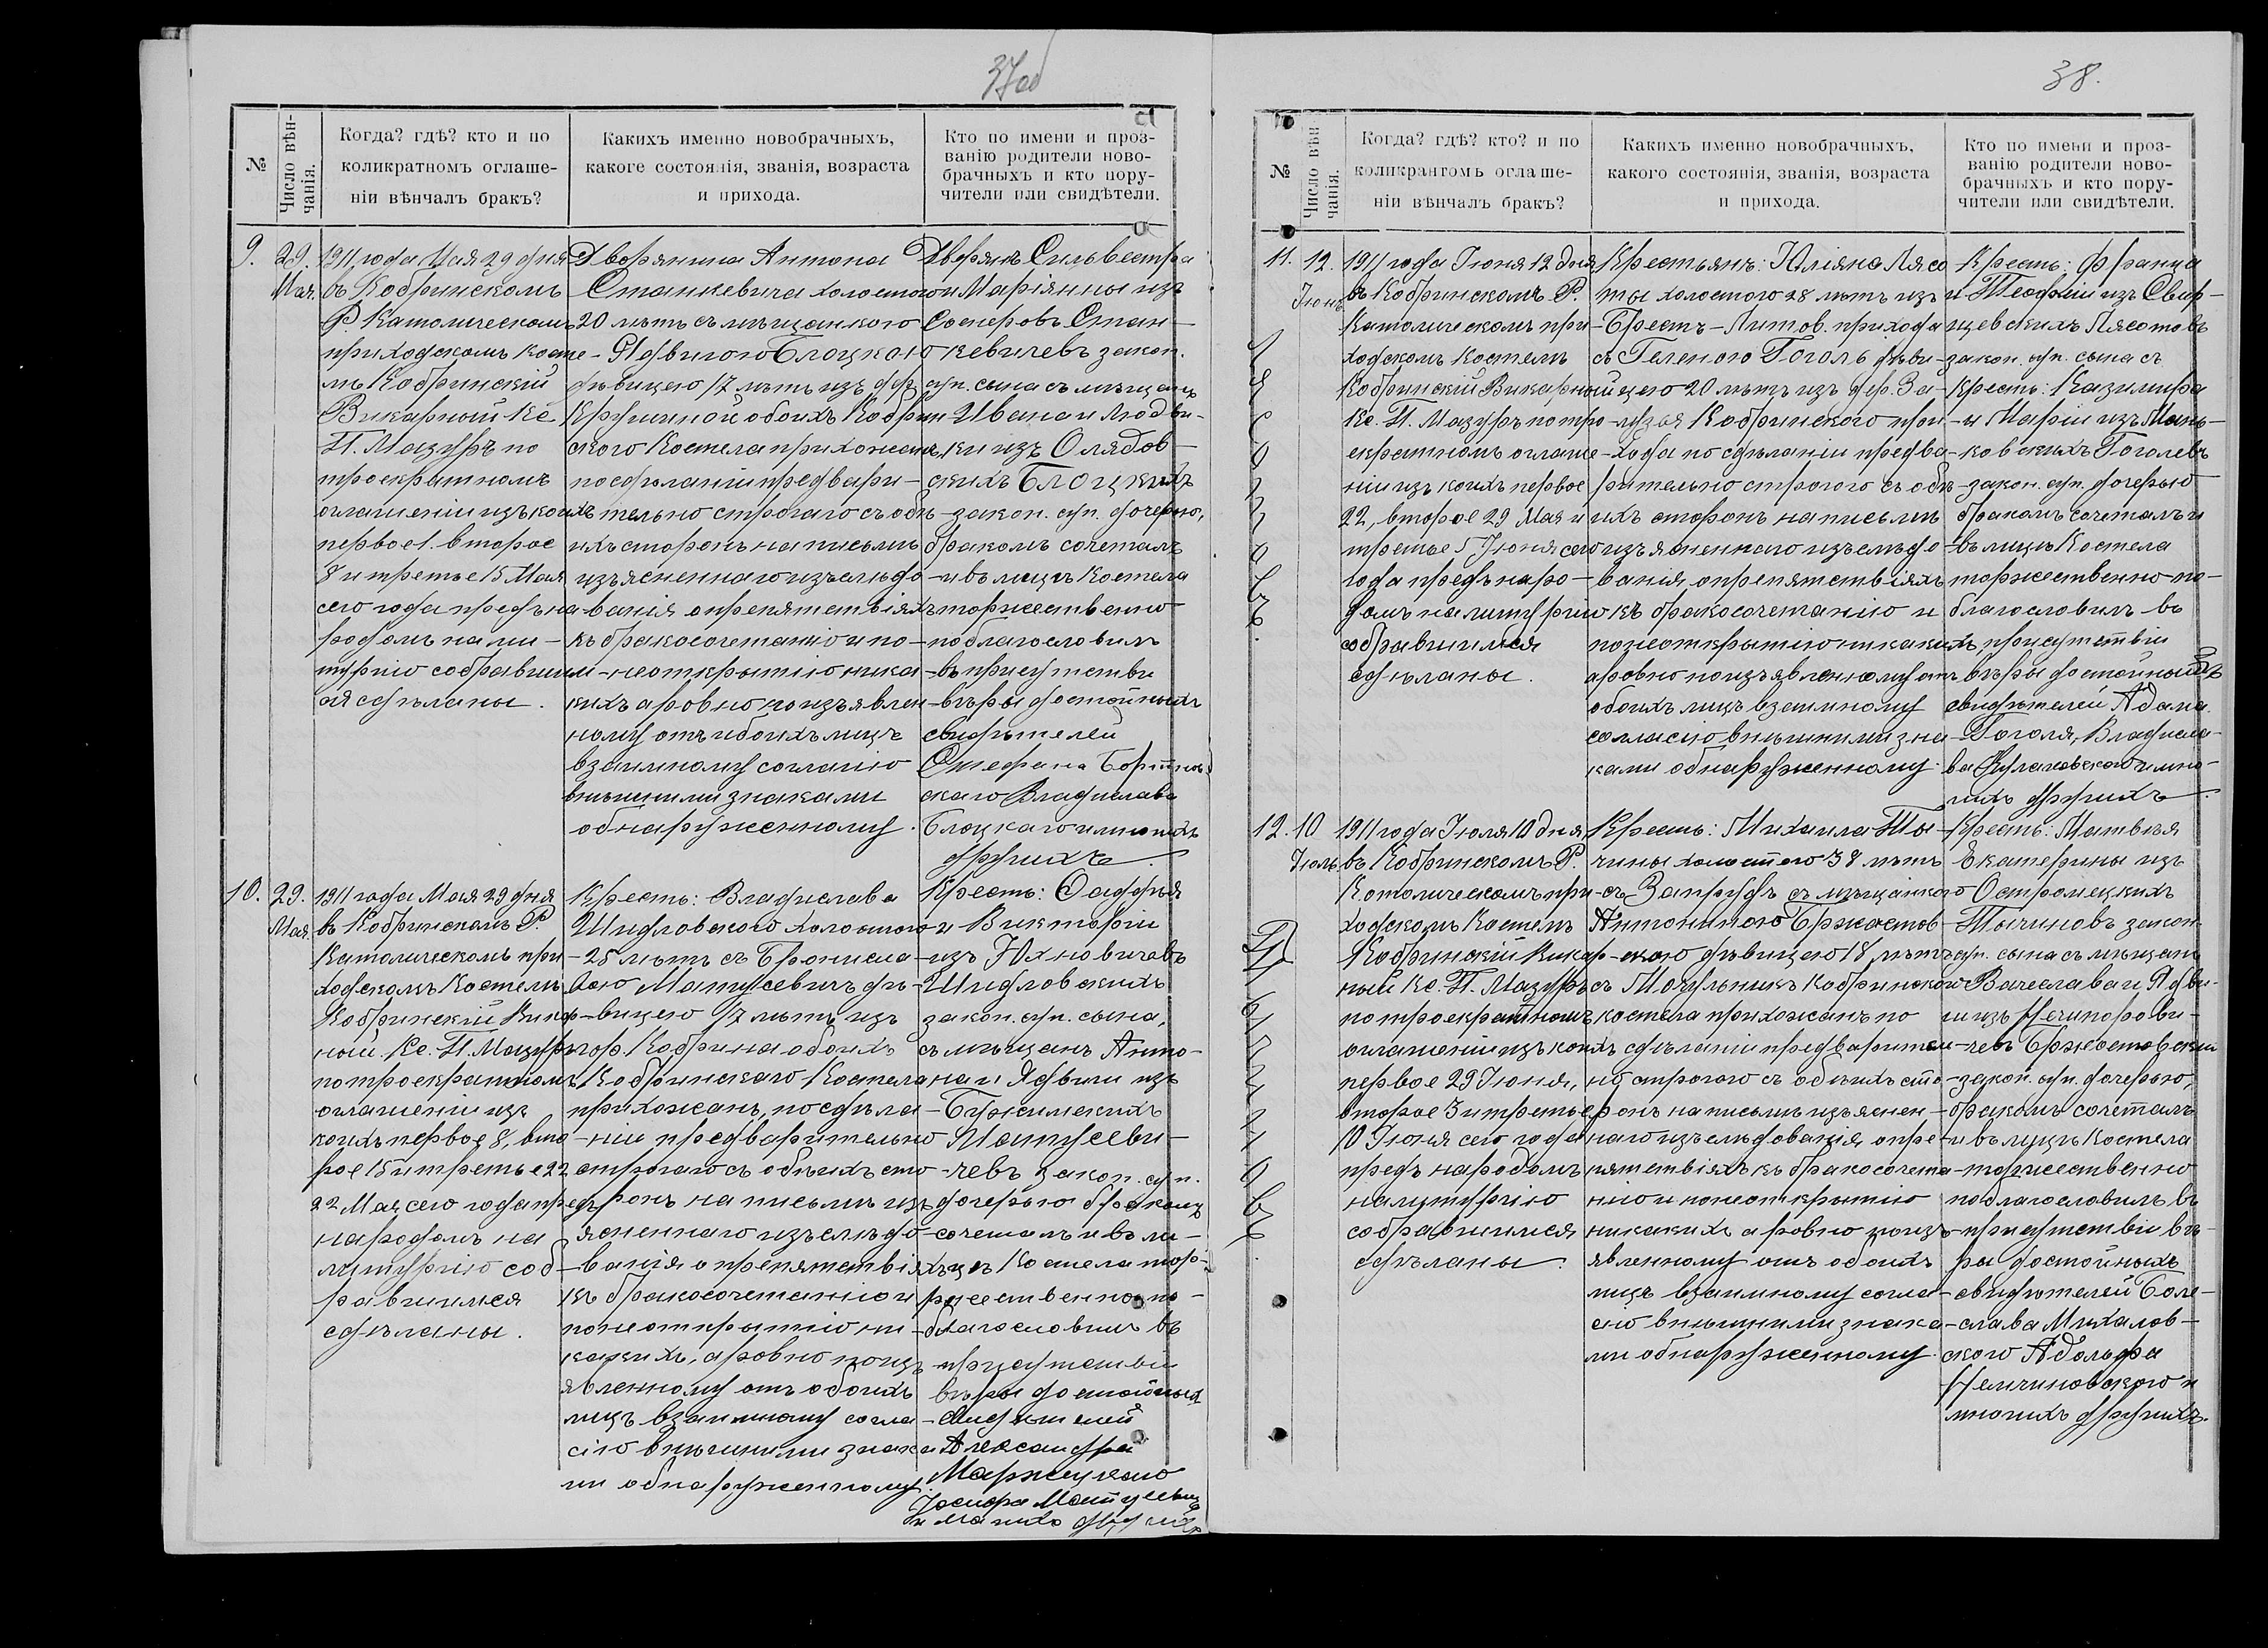 37об
№
Число вѣн-
чанія.
Когда? гдѣ? кто и по
коликратномъ оглаше-
ніи вѣнчалъ бракъ?
Какихъ именно новобрачныхъ,
какоге состоянія, званія, возраста
и прихода.
Кто по имени и проз-
ванію родители ново-
брачныхъ и кто пору-
чители или свидѣтели.
9.
29.
Мая.
1911 года Мая 29 дня
въ Кобринскомъ
Р. Католическомъ
приходскомъ Косте-
лѣ Кобринскій
Викарный Кс
П. Мазуръ по
троекратномъ
оглашеніи изъ коихъ
первое 1. второе
8 и третье 15 Мая
сего года предъ на-
родомъ на ли-
тургію собравшим-
ся сдѣланы.
Дворянина Антона
Станкевича холостого
20 лѣтъ съ мѣщанкою
Ядвигою Блоцкою
дѣвицею 17 лѣтъ изъ дер.
обоихъ Кобрин
ского Костела прихожанъ,
по сдѣланіи предвари-
тельно строгаго съ обѣ-
ихъ сторонъ на письмѣ
изъясненнаго изслѣдо-
ванія о препятствіяхъ
къ бракосочетанію и по-
неоткрытію ника-
кихъ а ровно по изъявлен-
ному отъ обоихъ лицъ
взаимному согласію
внѣшними знаками
обнаруженному.
Дворянъ Сильвестра
и Маріянны изъ
Стан-
кевичевъ закон.
суп. сына съ мѣщанъ
Ивана и Людви-
ки изъ Олядов-
скихъ Блоцкихъ
закон. суп. дочерью,
бракомъ сочеталъ
и въ лицѣ Костела
торжественно
поблагословилъ
въ присутствіи
вѣры достойныхъ
свидѣтелей
Стефана
скаго Владислава
Блоцкаго и многихъ
другихъ.
10.
29.
Мая.
1911 года Мая 29 дня
въ Кобринскомъ Р.
Католическомъ при-
ходскомъ Костелѣ
Кобринскій Викар-
ный Кс. П. Мазуръ
по троекратномъ
оглашеніи изъ
коихъ первое 8, вто-
рое 15 и третье 22
22 Мая сего года предъ
народомъ на
литургію соб-
равшимся
сдѣланы.
Крестъ: Владислава
Шидловского холостого
25 лѣтъ съ Бронисла-
вою Матусевичъ дѣ-
вицею 17 лѣтъ изъ
гор. Кобрина обоихъ
Кобринскаго Костела
прихожанъ, по сдѣла-
ніи предварительно
строгаго съ обѣихъ сто-
ронъ на письмѣ изъ-
ясненнаго изслѣдо-
ванія о препятствіяхъ
къ бракосочетанію и
по неоткрытію ни-
какихъ, а ровно по изъ-
явленному отъ обоихъ
лицъ взаимному согла-
сію внѣшними знака-
ми обнаруженному.
Крестъ: Фаддея
и Викторіи
изъ Юхновичевъ
Шидловскихъ
закон. суп. сына,
съ мѣщанъ Анто-
на и Ядвиги изъ
Матусеви-
чевъ закон. суп.
дочерью бракомъ
сочеталъ и въ ли-
цѣ Костела тор-
жественно по-
благословилъ въ
присутствіи
вѣры достойныхъ
свидѣтелей
Александра
Іосифа Матусевича
и многихъ другихъ
38.
№
Число вѣн
чанія.
Когда? гдѣ? кто? и по
коликрантомъ оглаше-
ніи вѣнчалъ бракъ?
Какихъ именно новобрачныхъ,
какого состоянія, званія, возраста
и прихода.
Кто по имени и проз-
ванію родители ново-
брачныхъ и кто пору-
чители или свидѣтели.
11.
12.
Іюнь
1911 года Іюня 12 дня
въ Кобринскомъ Р.
Католическомъ при-
ходскомъ Костелѣ
Кобринскій Викарный
Кс. П. Мазуръ по тро-
екратномъ оглаше-
ніи изъ коихъ первое
22, второе 29 Мая и
третье 5 Іюня сего
года предъ наро-
домъ на литургію
собравшимся
сдѣланы.
Крестьянъ: Юліяна Лясо
ты холостого 28 лѣтъ изъ
Брестъ-Литов. прихода
съ Геленою Гоголь дѣви-
цею 20 лѣтъ изъ дер. За-
Кобринского при-
хода по сдѣланіи предва-
рительно строгого съ обѣ-
ихъ сторонъ на письмѣ
изъясненнаго изслѣдо-
ванія о препятствіяхъ
къ бракосочетанію и
по неоткрытію никакихъ,
а ровно по изъявленному отъ
обоихъ лицъ взаимному
согласію внѣшними зна-
ками обнаруженному.
Крестъ: Франца
и Теофиліи изъ Свир-
щевскихъ Лясотовъ
закон. суп. сына съ
Крестъ: Казимира
и Маріи изъ Мань-
ковскихъ Гоголевъ
закон. суп. дочерью
бракомъ сочеталъ и
въ лицѣ Костела
торжественно по-
благословилъ въ
присутствіи
вѣры достойныхъ
свидѣтелей Адама
Гоголя, Владисла-
ва и мно-
гихъ другихъ.
12.
10
Іюль
1911 года Іюля 10 дня
въ Кобринскомъ Р.
Католическомъ при-
ходскомъ Костелѣ
Кобринскій Викар-
ный Кс. П. Мазуръ
по троекратномъ
оглашеніи изъ коихъ
первое 29 Іюня,
второе 3 и третье
10 Іюня сего года
предъ народомъ
на литургію
собравшимся
сдѣланы.
Крестъ: Михаила Ты-
чины холостого 38 лѣтъ
съ Запрудъ съ мѣщанкою
Антониною Бржостов-
скою дѣвицею 18 лѣтъ
съ Кобринского
костела прихожанъ по
сдѣланіи предварител-
но строгого съ обѣихъ сто-
ронъ на письмѣ изъяснен-
наго изслѣдованія о пре-
пятствіяхъ къ бракосочета-
нію и по неоткрытію
никакихъ а ровно по изъ-
явленному отъ обоихъ
лицъ взаимному согла-
сію внѣшними знака-
ми обнаруженному.
Крестъ: Матвѣя
Екатерины изъ
Остромецкихъ
Тычиновъ закон.
суп. сына съ мѣщанъ
Вачеслава и Ядви-
ги изъ Нечипорови-
чевъ Бржостовскихъ
закон. суп. дочерью,
бракомъ сочеталъ
и въ лицѣ Костела
торжественно
поблагословилъ въ
присутствіи вѣ-
ры достойныхъ
свидѣтелей Боле-
слава Михалов-
ского Адольфа
и
многихъ другихъ.